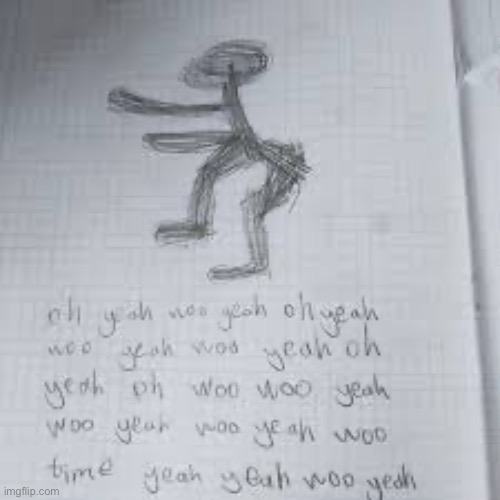 oh yeah woo yeah oh yeah
woo yeah woo yeah oh
yeah oh woo woo yeah
woo yeah woo yeah woo
time yeah yeah woo yeah
imgflip.com